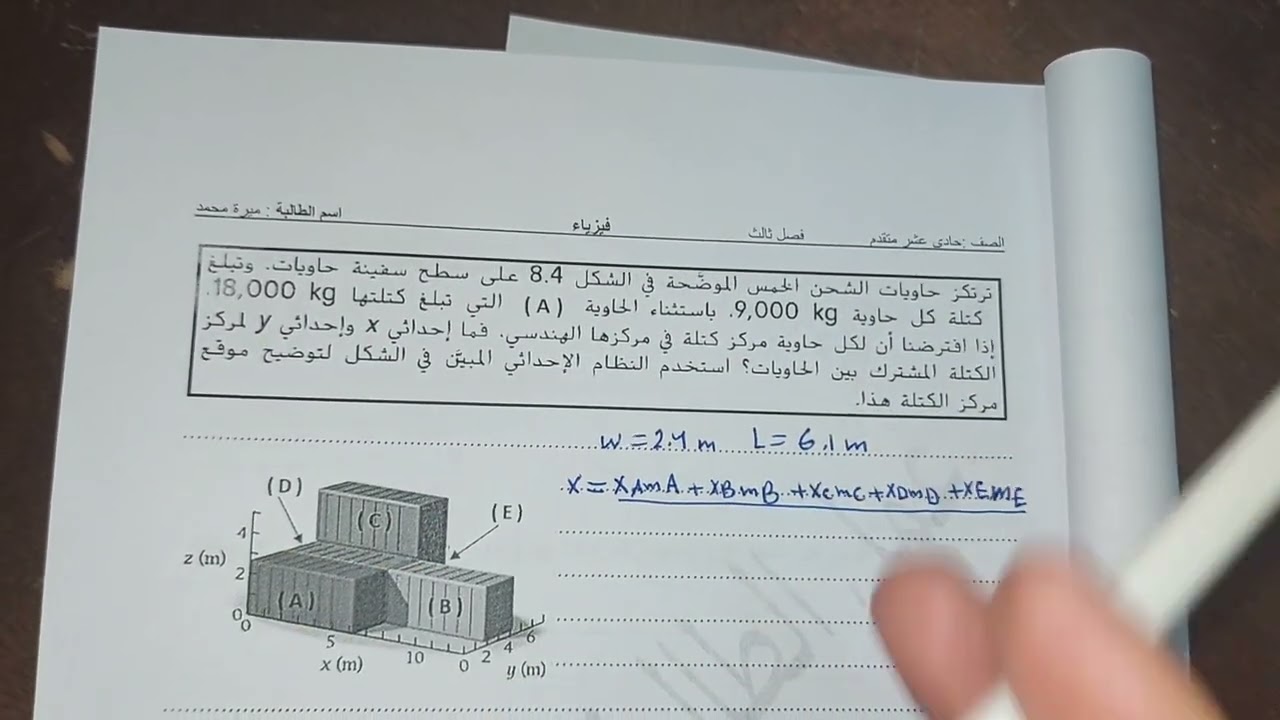 الصف :حادي عشر متقدم فصل ثالث فيزياء اسم الطالبة : ميرة محمد
ترتكز حاويات الشحن الخمس الموضَّحة في الشكل 8.4 على سطح سفينة حاويات. وتبلغ
كتلة كل حاوية 9,000 kg. باستثناء الحاوية (A) التي تبلغ كتلتها 18,000 kg.
إذا افترضنا أن لكل حاوية مركز كتلة في مركزها الهندسي. فما إحداثي x وإحداثي y لمركز
الكتلة المشترك بين الحاويات؟ استخدم النظام الإحداثي المبيَّن في الشكل لتوضيح موقع
مركز الكتلة هذا.
w = 2.4 m L = 6.1 m
X = XAmA + XBmB + XCmC + XDmD + XEmE
(D)
(C)
(E)
(A)
(B)
z (m)
4
2
0
0
5
10
x (m)
0
2
4
6
y (m)